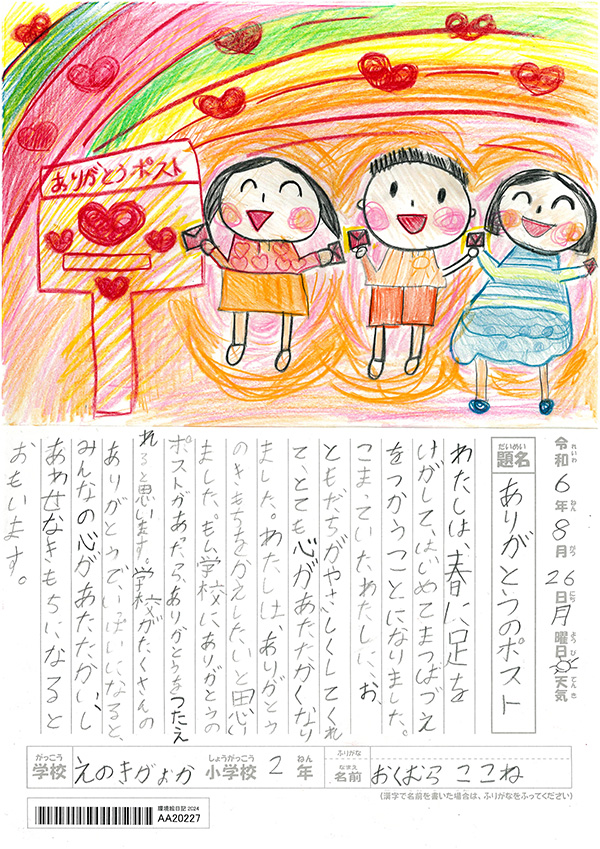 ありがとうポスト
令和6年8月26日月曜日 天気
れいわ ねん がつ にち ようび てんき
だいめい
題名 ありがとうのポスト
わたしは、春に足を
けがして、はじめてまつばづえ
をつかうことになりました。
こまっていたわたしに、お
ともだちがやさしくしてくれ
て、とても心があたたかくなり
ました。わたしは、ありがとう
のきもちをかえしたいと思い
ました。もし学校にありがとうの
ポストがあったら、ありがとうをつたえ
れると思います。学校がたくさんの
ありがとうでいぱいになると、
みんなの心があたたかい、し
あわせなきもちになると
おもいます。
がっこう しょうがっこう ねん ふりがな なまえ
学校 えのきがおか 小学校 2年 名前 おくむら ここね
(漢字で名前を書いた場合は、ふりがなをふってください)
環境絵日記 2024
AA20227